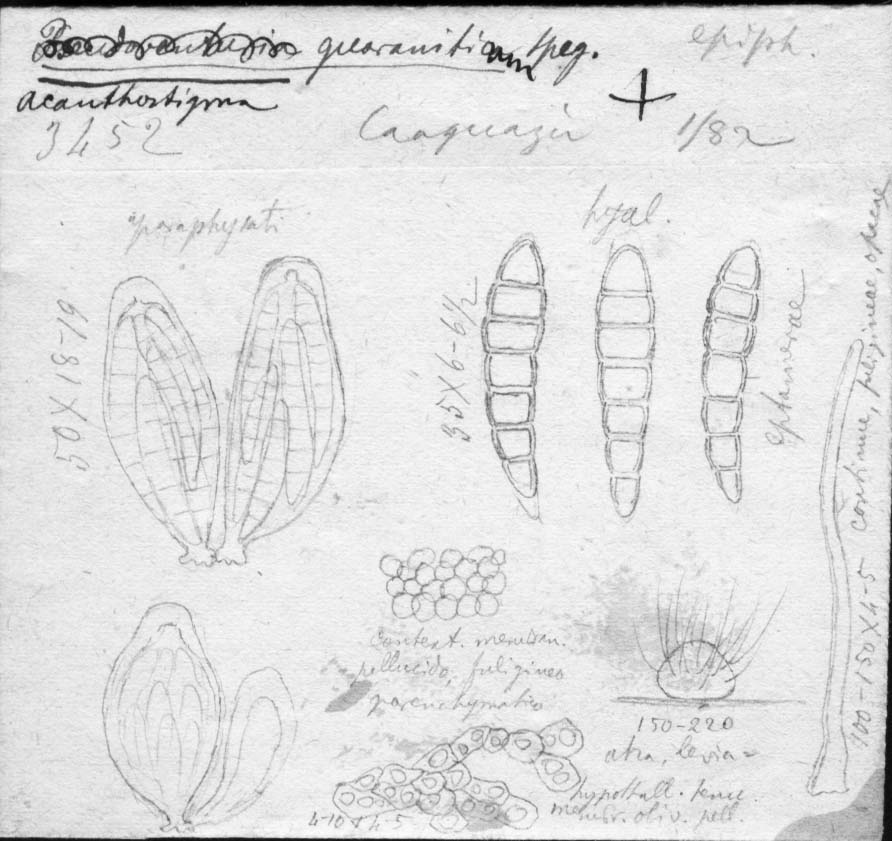 Pseudoventuria guaraniticum Speg. epiph.
Acanthostigma +
3452 Caaguazú 1/82
paraphysati
hyal.
50 X 18-19
35 X 6-6 1/2
100-150 X 4-5 continue, fuligineae, opacae
context. membran.
pellucido, fuligineo
parenchymatico
150-220
atra, levia=
hypothall. tenue.
membr. oliv. pell.
4-10 x 4-5